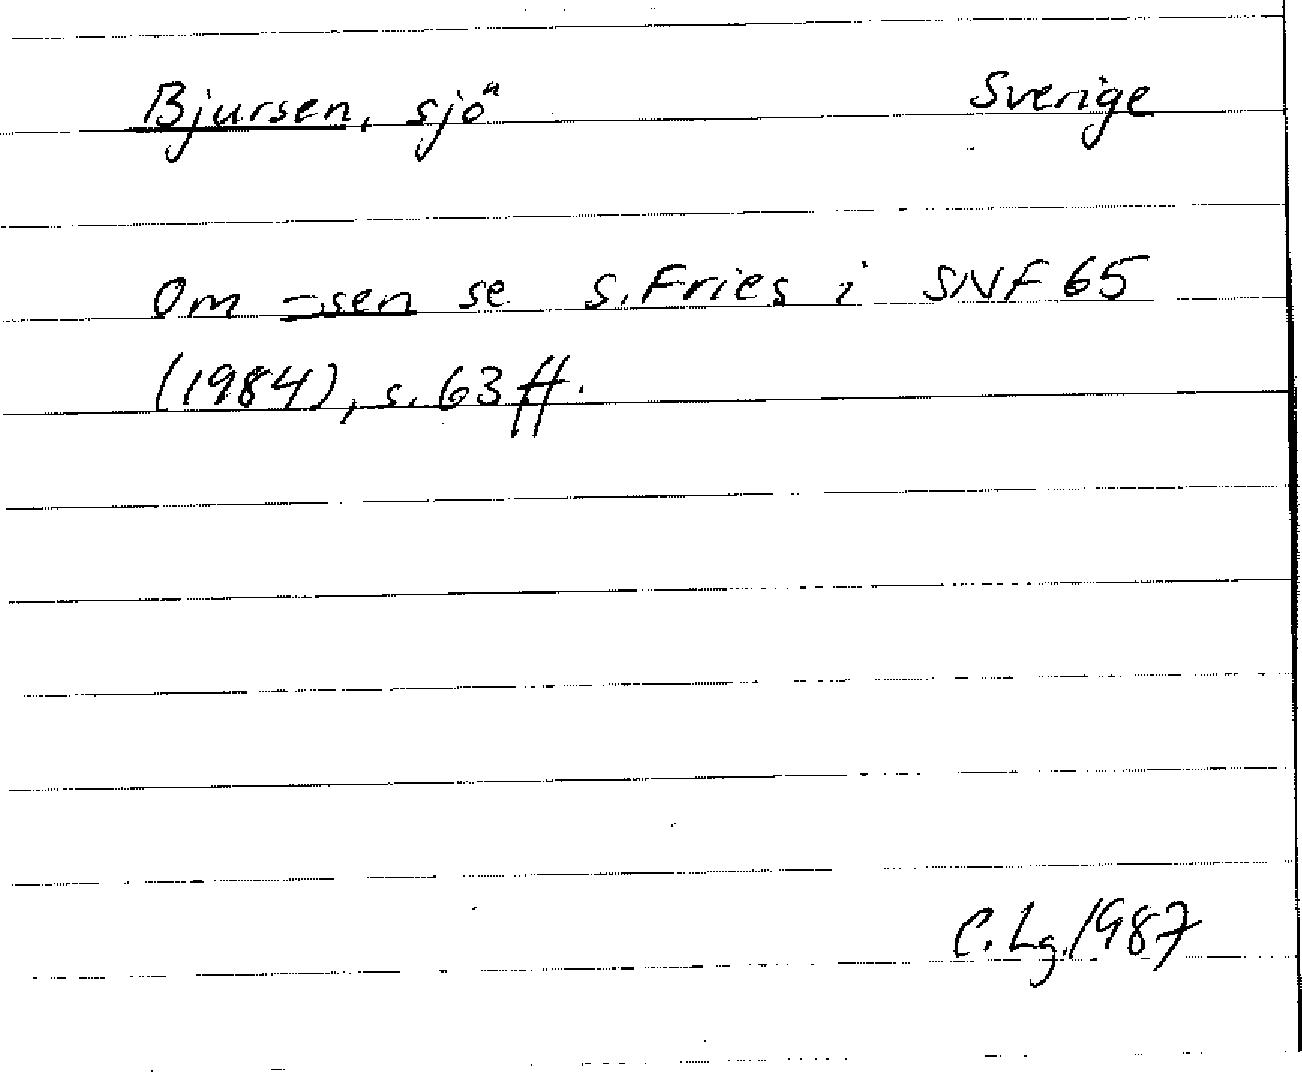 Bjursen, sjö Sverige
Om -sen se S. Fries i SNF 65
(1984), s. 63 ff.
C. Lg. 1987